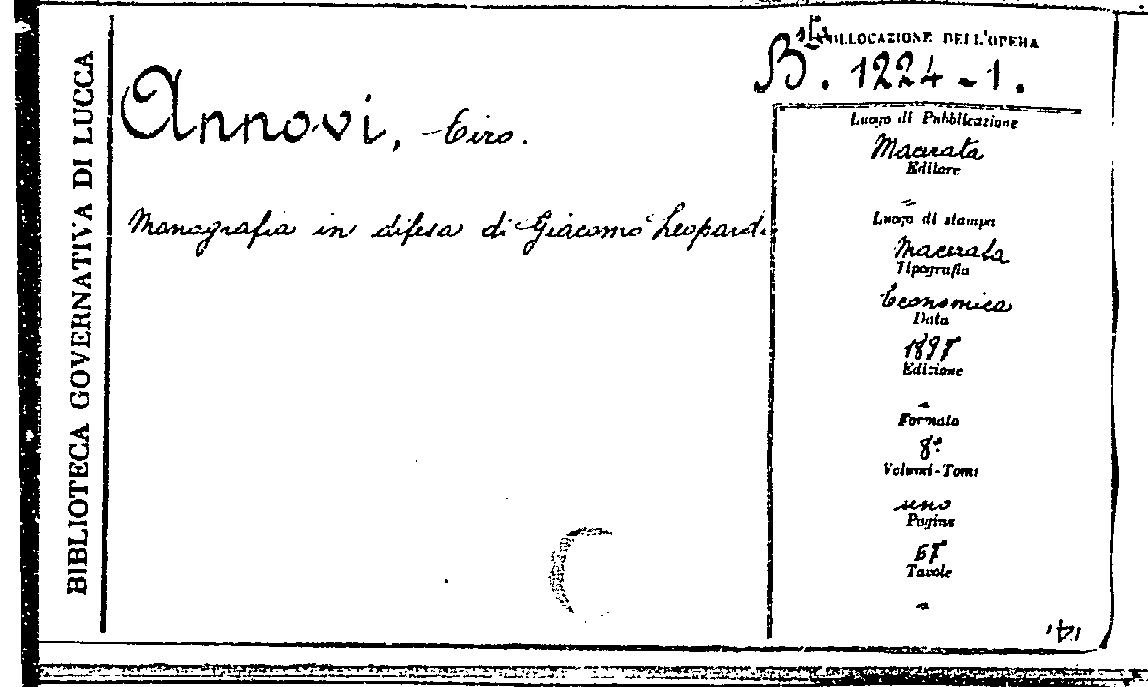 BIBLIOTECA GOVERNATIVA DI LUCCA
COLLOCAZIONE DELL'OPERA
B. 1224-1.
Annovi, Ciro.
Monografia in difesa di Giacomo Leopardi
Luogo di Pubblicazione
Macerata
Editore
Luogo di stampa
Macerata
Tipografia
Economica
Data
Edizione
Formato
8º
Volumi-Tomi
uno
Pagine
Tavole